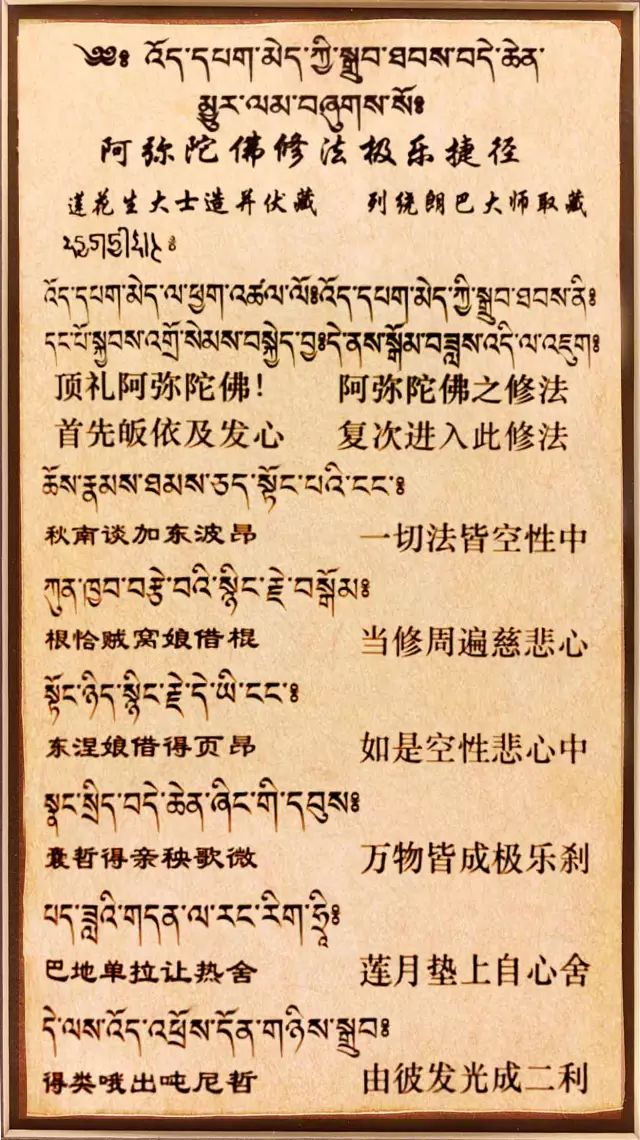 ༄༅༔ འོད་དཔག་མེད་ཀྱི་སྒྲུབ་ཐབས་བདེ་ཆེན་
མྱུར་ལམ་བཞུགས་སོ༔
阿弥陀佛修法极乐捷径
莲花生大士造并伏藏 列绕朗巴大师取藏
འོད་དཔག་མེད་ལ་ཕྱག་འཚལ་ལོ༔འོད་དཔག་མེད་ཀྱི་སྒྲུབ་ཐབས་ནི༔
དང་པོ་སྐྱབས་འགྲོ་སེམས་བསྐྱེད་བྱ༔དེ་ནས་སྒོམ་བཟླས་འདི་ལ་འཇུག༔
顶礼阿弥陀佛! 阿弥陀佛之修法
首先皈依及发心 复次进入此修法
ཆོས་རྣམས་ཐམས་ཅད་སྟོང་པའི་ངང་༔
秋南谈加东波昂 一切法皆空性中
ཀུན་ཁྱབ་བརྩེ་བའི་སྙིང་རྗེ་བསྒོམ༔
根恰贼窝娘借棍 当修周遍慈悲心
སྟོང་ཉིད་སྙིང་རྗེ་དེ་ཡི་ངང་༔
东涅娘借得页昂 如是空性悲心中
སྣང་སྲིད་བདེ་ཆེན་ཞིང་གི་དབུས༔
囊哲得亲秧歌微 万物皆成极乐刹
པད་ཟླའི་གདན་ལ་རང་རིག་ཧྲཱི༔
巴地单拉让热舍 莲月垫上自心舍
དེ་ལས་འོད་འཕྲོས་དོན་གཉིས་སྒྲུབ༔
得类哦出吨尼哲 由彼发光成二利